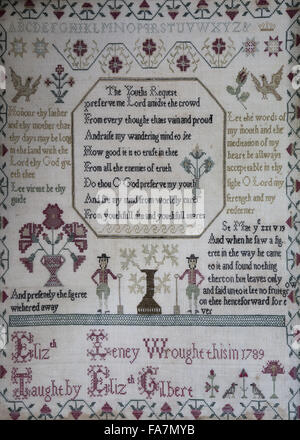 ABCDEFGHIKLMNOPQRSTUVWXYZ&
Honour thy father
and thy mother that
thy days may be long
in the land with the
Lord thy God giv
eth thee
Let virtue be thy
guide
The Youths Request
preserve me Lord amidst the crowd
From every thought thats vain and proud
And raise my wandering mind to see
How good it is to trust in thee
From all the enemies of truth
Do thou O God preserve my youth
And set my mind from worldly cares
From youthfull sins and youthfull snares
Let the words of
my mouth and the
meditation of my
heart be allways
acceptable in thy
sight O Lord my
strength and my
redeemer
And when he saw a fig
tree in the way he came
to it and found nothing
thereon but leaves only
and said unto it let no fruit grow
on thee henceforward for e
ver
And presently the fig tree
withered away
Eliz.th Leney Wrought this in 1789
Taught by Eliz.th Gilbert
alamy
Image ID: FA7MYB
www.alamy.com